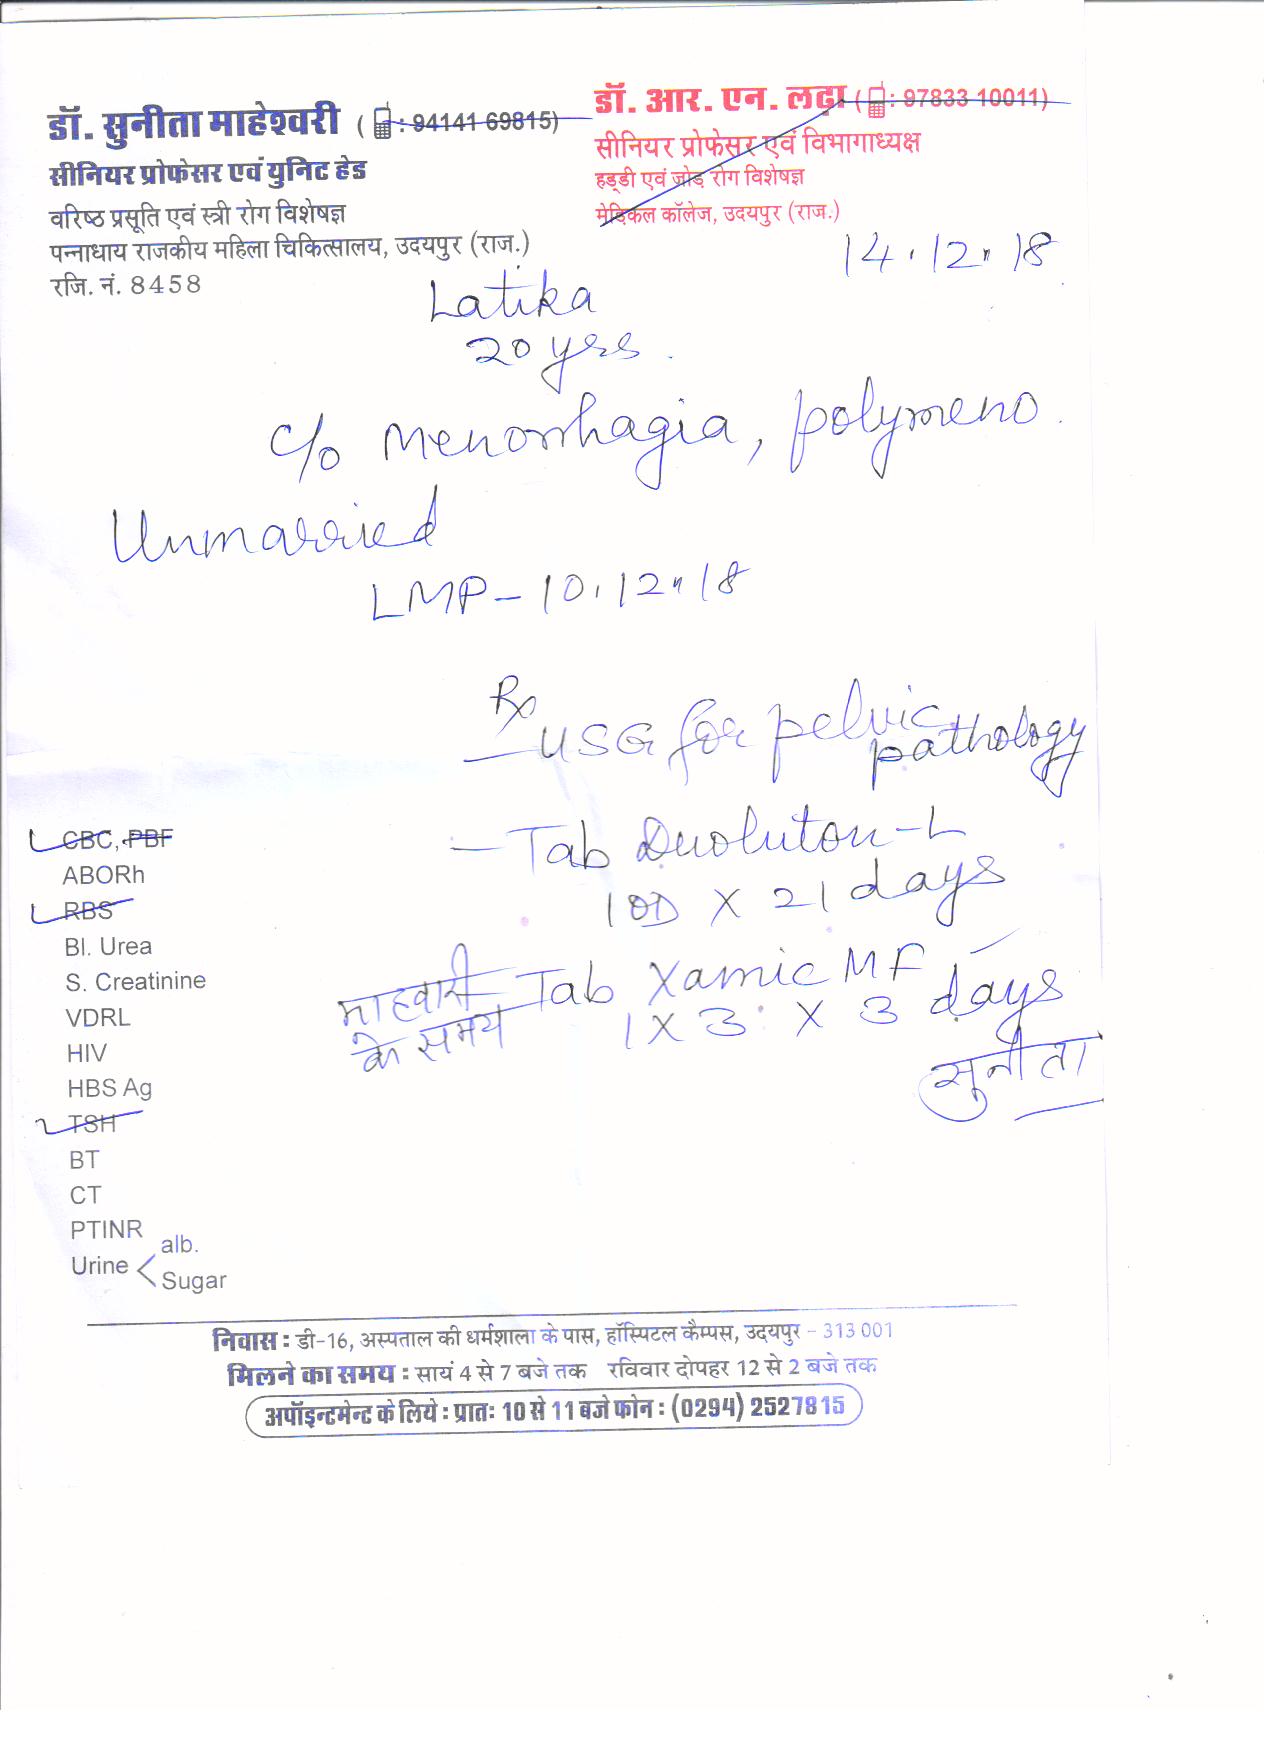 डॉ. सुनीता माहेश्वरी ( : 94141 69815)
सीनियर प्रोफेसर एवं युनिट हेड
वरिष्ठ प्रसूति एवं स्त्री रोग विशेषज्ञ
पन्नाधाय राजकीय महिला चिकित्सालय, उदयपुर (राज.)
रजि. नं. 8458
डॉ. आर. एन. लढ़ा ( : 97833 10011)
सीनियर प्रोफेसर एवं विभागाध्यक्ष
हड्डी एवं जोड़ रोग विशेषज्ञ
मेडिकल कॉलेज, उदयपुर (राज.)
14.12.18
Latika
20 yrs.
c/o Menorrhagia, polymeno.
Unmarried
LMP - 10.12.18
Rx
- USG for pelvic
pathology
- Tab Duoluton-L
1 OD X 21 days
माहवारी के समय
- Tab Xamic MF
1 X 3 X 3 days
सुनीता
CBC, PBF
ABORh
RBS
Bl. Urea
S. Creatinine
VDRL
HIV
HBS Ag
TSH
BT
CT
PTINR
Urine < alb.
Sugar
निवास : डी-16, अस्पताल की धर्मशाला के पास, हॉस्पिटल कैम्पस, उदयपुर - 313 001
मिलने का समय : सायं 4 से 7 बजे तक रविवार दोपहर 12 से 2 बजे तक
अपॉइन्टमेन्ट के लिये : प्रातः 10 से 11 बजे फोन : (0294) 2527815